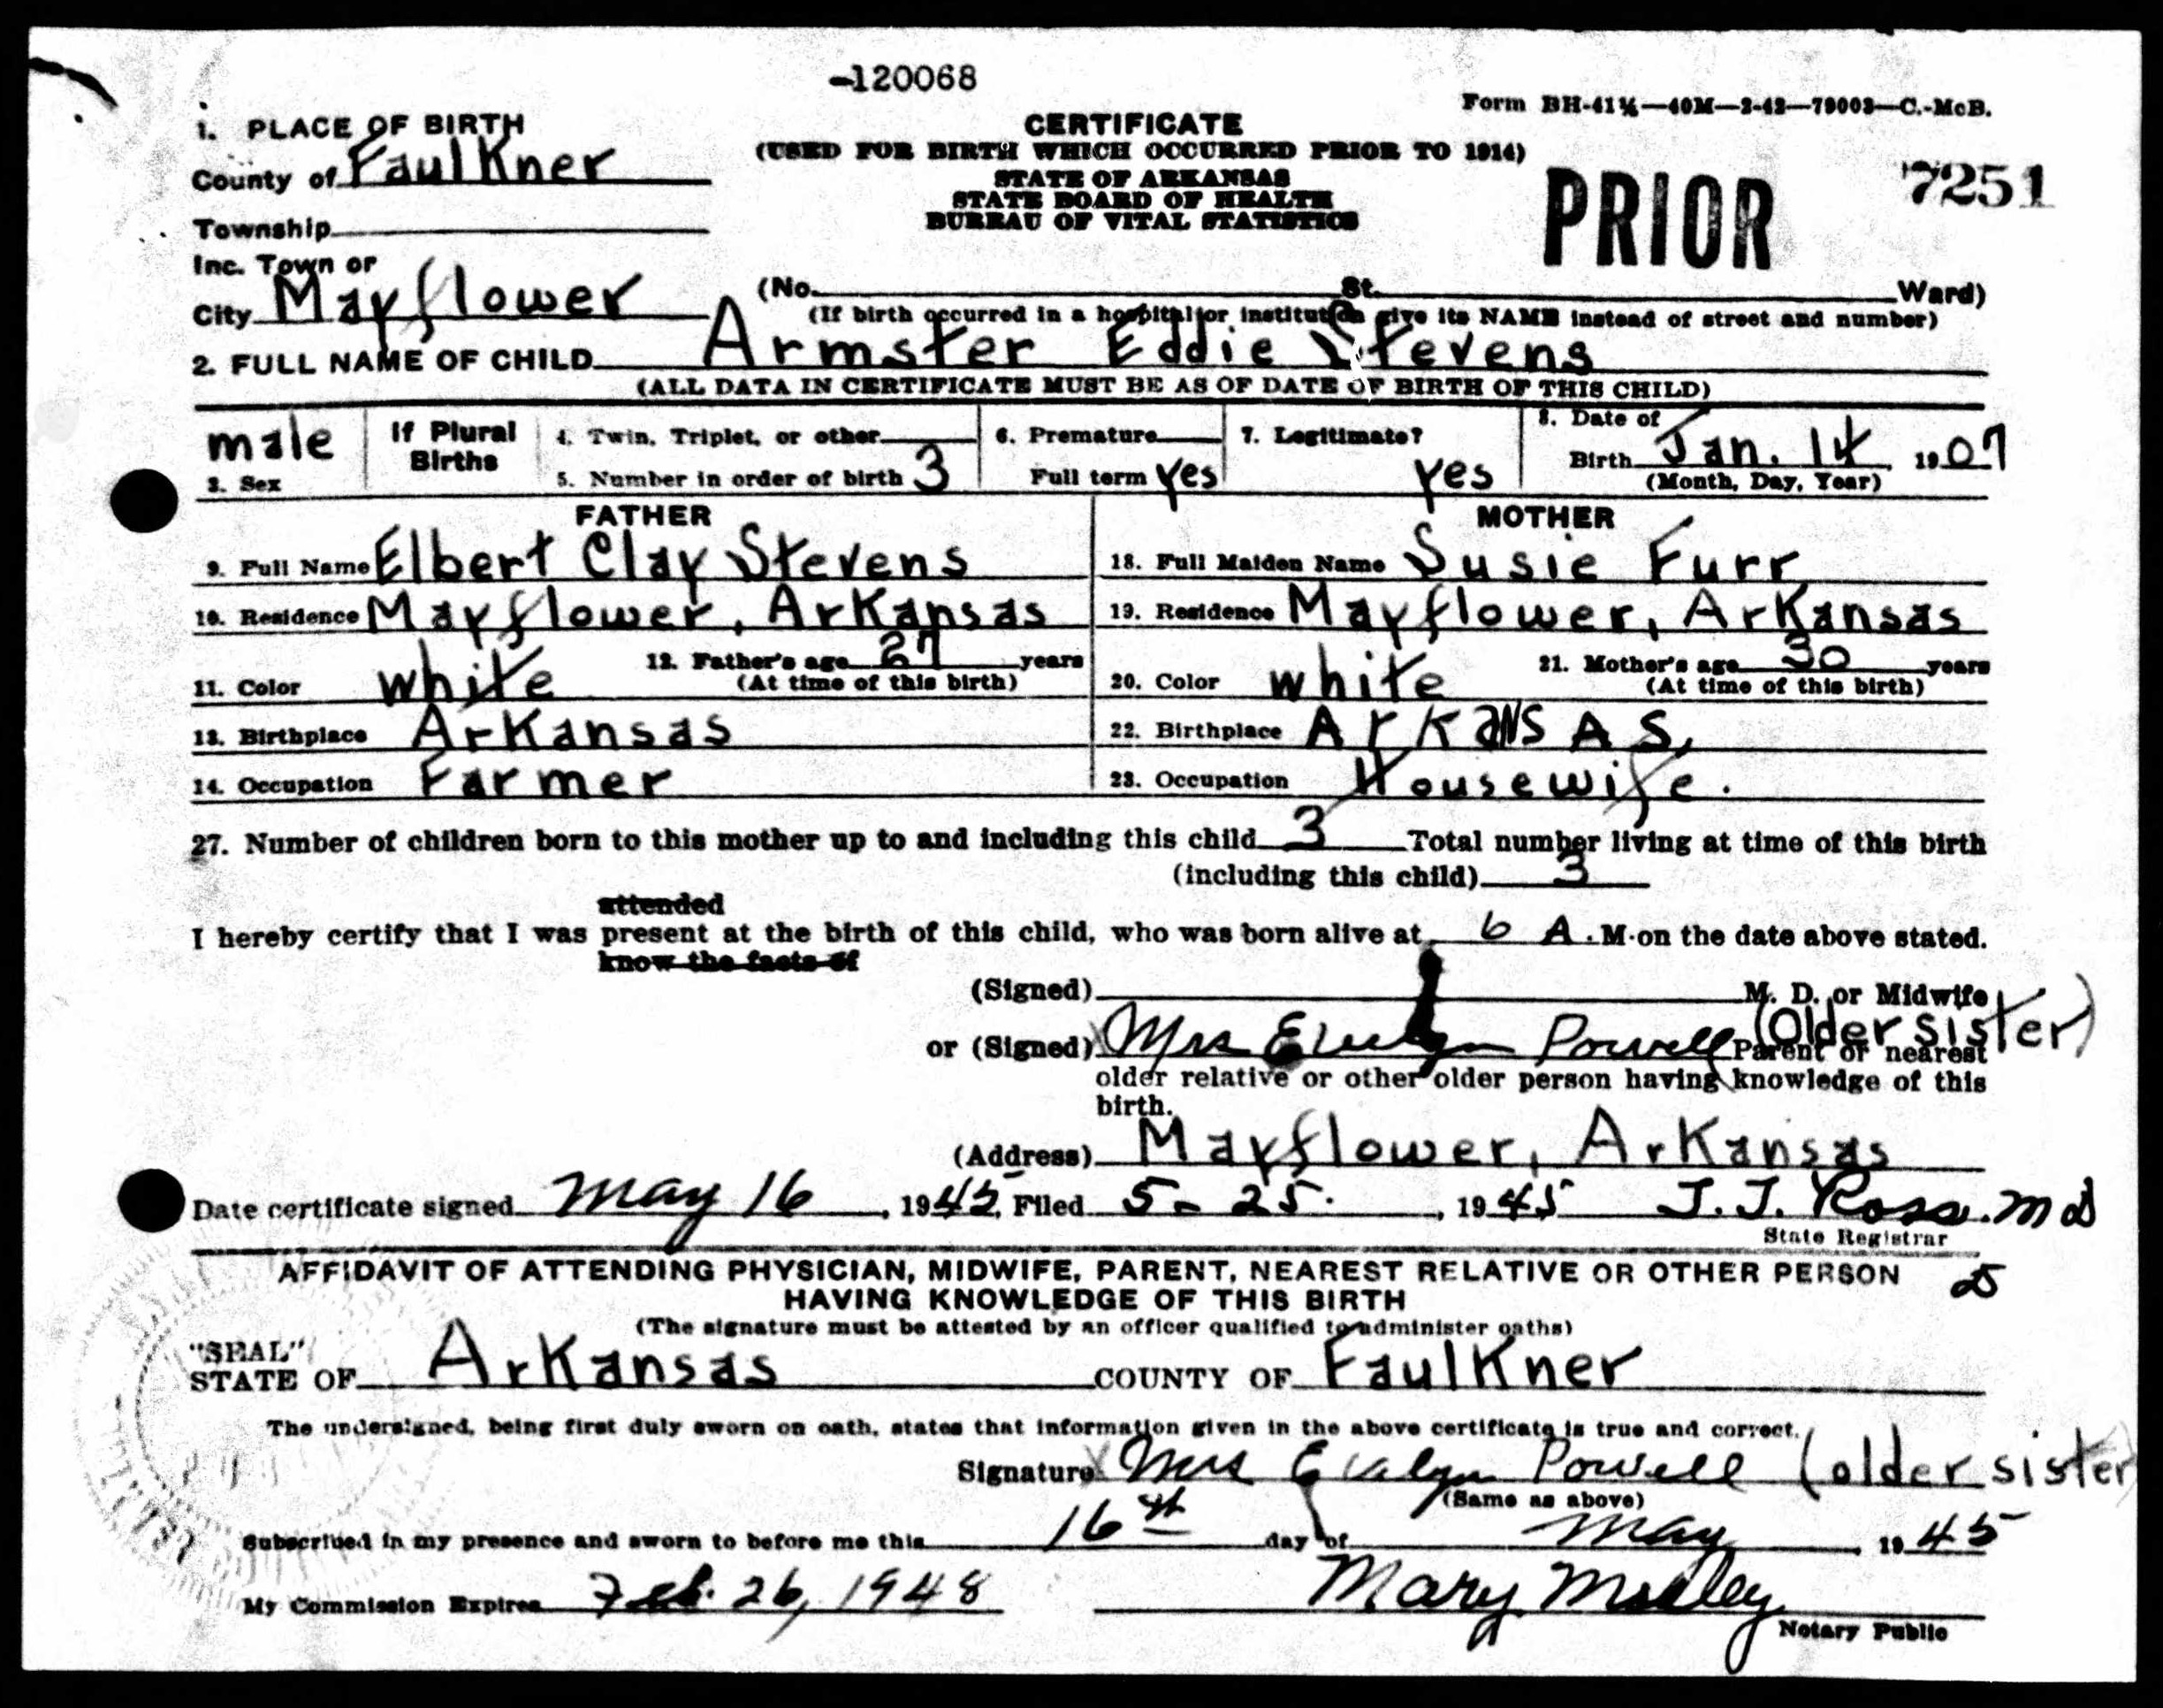 -120068
Form BH-41½—40M—2-42—79003—C.-McB.
1. PLACE OF BIRTH
CERTIFICATE
County of Faulkner
(USED FOR BIRTH WHICH OCCURRED PRIOR TO 1914)
STATE OF ARKANSAS
STATE BOARD OF HEALTH
BUREAU OF VITAL STATISTICS
PRIOR 7251
Township
Inc. Town or
City Mayflower (No. St. Ward)
(If birth occurred in a hospital or institution give its NAME instead of street and number)
2. FULL NAME OF CHILD Armster Eddie Stevens
(ALL DATA IN CERTIFICATE MUST BE AS OF DATE OF BIRTH OF THIS CHILD)
male If Plural Births 4. Twin, Triplet, or other 6. Premature 7. Legitimate? 8. Date of
3. Sex 5. Number in order of birth 3 Full term yes yes Birth Jan. 14 1907
(Month, Day, Year)
FATHER MOTHER
9. Full Name Elbert Clay Stevens 18. Full Maiden Name Susie Furr
10. Residence Mayflower, Arkansas 19. Residence Mayflower, Arkansas
11. Color white 12. Father's age years 20. Color white 21. Mother's age 30 years
(At time of this birth) (At time of this birth)
13. Birthplace Arkansas 22. Birthplace ArKANSAS,
14. Occupation Farmer 23. Occupation Housewife.
27. Number of children born to this mother up to and including this child 3 Total number living at time of this birth
(including this child) 3
attended
I hereby certify that I was present at the birth of this child, who was born alive at 6 A.M. on the date above stated.
know the facts of
(Signed) M. D. or Midwife
or (Signed) Mrs Evelyn Powell (Older sister) Parent or nearest
older relative or other older person having knowledge of this
birth.
(Address) Mayflower, Arkansas
Date certificate signed May 16, 1945, Filed 5-25-, 1945 J.J. Ross. MD
State Registrar
AFFIDAVIT OF ATTENDING PHYSICIAN, MIDWIFE, PARENT, NEAREST RELATIVE OR OTHER PERSON
HAVING KNOWLEDGE OF THIS BIRTH
(The signature must be attested by an officer qualified to administer oaths)
"SEAL"
STATE OF Arkansas COUNTY OF Faulkner
The undersigned, being first duly sworn on oath, states that information given in the above certificate is true and correct.
Signature Mrs Evalyn Powell (older sister
(Same as above)
Subscribed in my presence and sworn to before me this 16th day of May, 1945
My Commission Expires Feb. 26, 1948 Mary
Notary Public